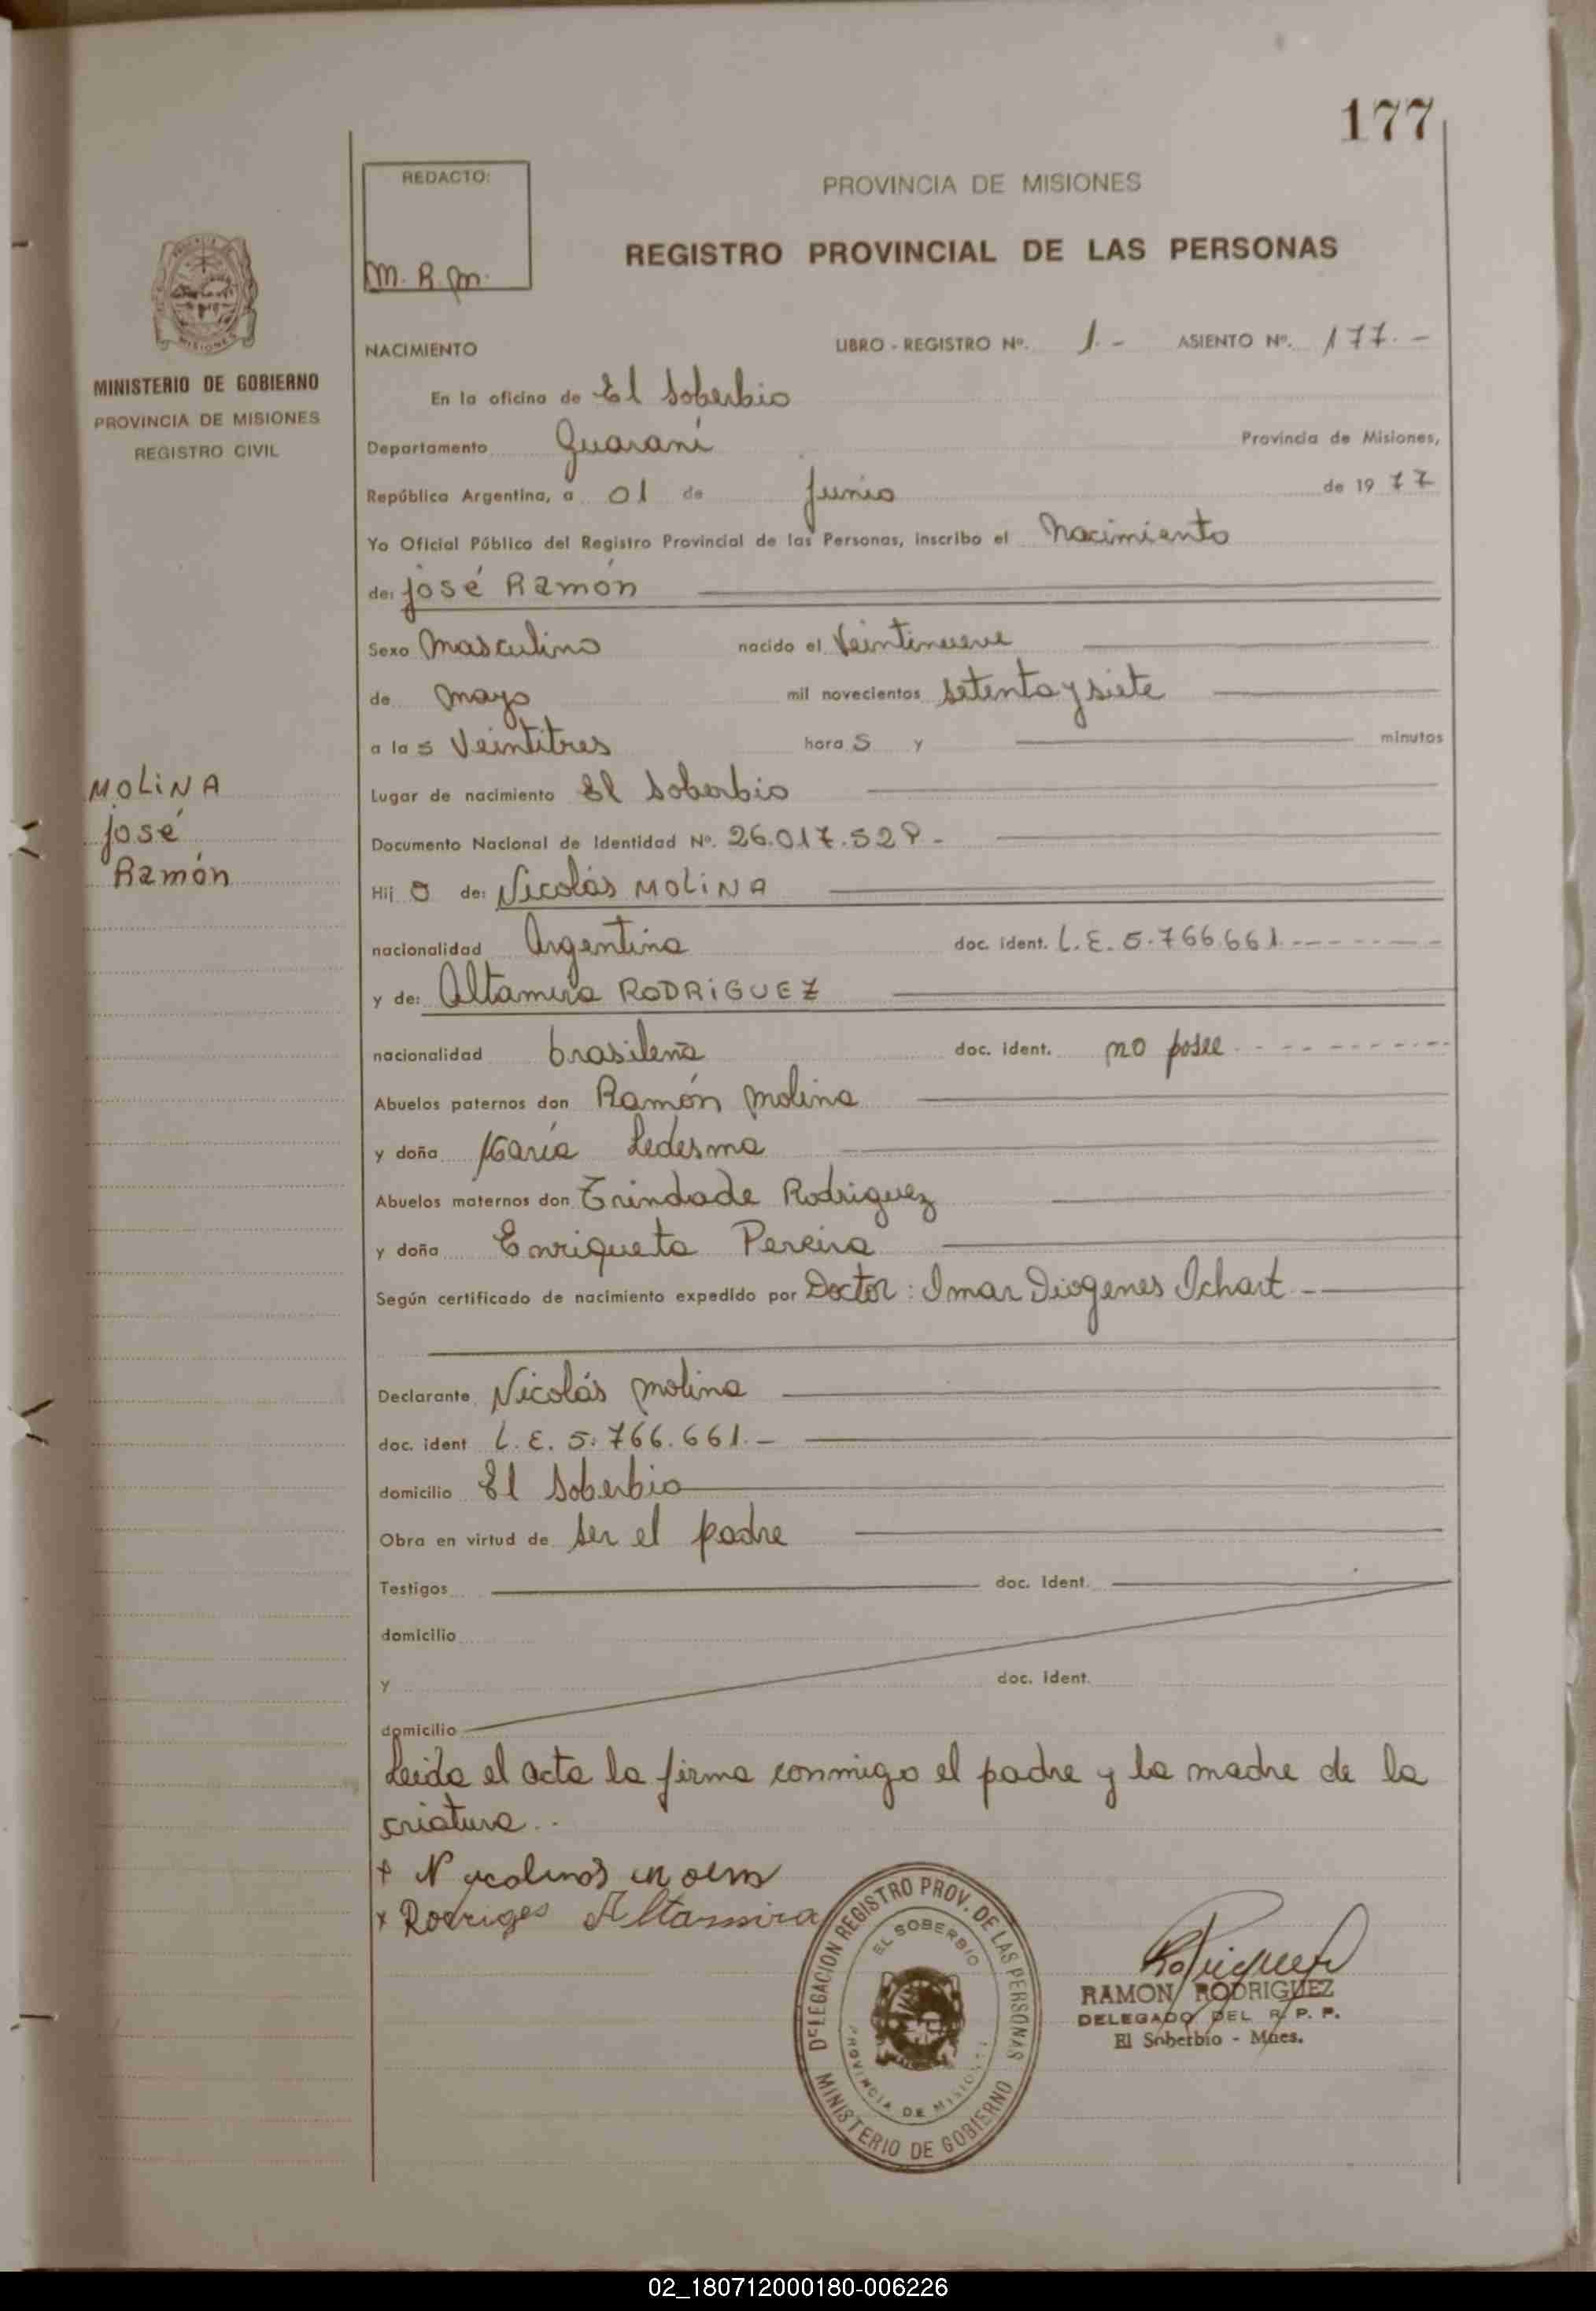 177
REDACTO:
M. R. M.
PROVINCIA DE MISIONES
REGISTRO PROVINCIAL DE LAS PERSONAS
MISIONES
MINISTERIO DE GOBIERNO
PROVINCIA DE MISIONES
REGISTRO CIVIL
NACIMIENTO LIBRO - REGISTRO Nº. 1.- ASIENTO Nº. 177.-
En la oficina de El Soberbio
Departamento Guaraní Provincia de Misiones,
República Argentina, a 01 de Junio de 1977
Yo Oficial Público del Registro Provincial de las Personas, inscribo el Nacimiento
de: José Ramón
Sexo Masculino nacido el Veintinueve
de Mayo mil novecientos setenta y siete
a las Veintitres horas y minutos
MOLINA
José
Ramón
Lugar de nacimiento El Soberbio
Documento Nacional de Identidad Nº. 26.017.529-
Hijo de: Nicolás MOLINA
nacionalidad Argentina doc. ident. L.E. 5.766.661.-
y de: Altamira RODRIGUEZ
nacionalidad brasileña doc. ident. no posee
Abuelos paternos don Ramón Molina
y doña María Ledesma
Abuelos maternos don Trindade Rodriguez
y doña Enriqueta Pereira
Según certificado de nacimiento expedido por Doctor: Imar Diogenes Ichart
Declarante Nicolás Molina
doc. ident L.E. 5.766.661.-
domicilio El Soberbio
Obra en virtud de ser el padre
Testigos doc. Ident.
domicilio
y doc. Ident.
domicilio
Leida el acta la firma conmigo el padre y la madre de la
criatura..
x Rodriges Altamira
DELEGACION REGISTRO PROV. DE LAS PERSONAS
EL SOBERBIO
PROVINCIA DE MISIONES
MINISTERIO DE GOBIERNO
RAMON RODRIGUEZ
DELEGADO DEL R. P. P.
El Soberbio - Mnes.
02_180712000180-006226